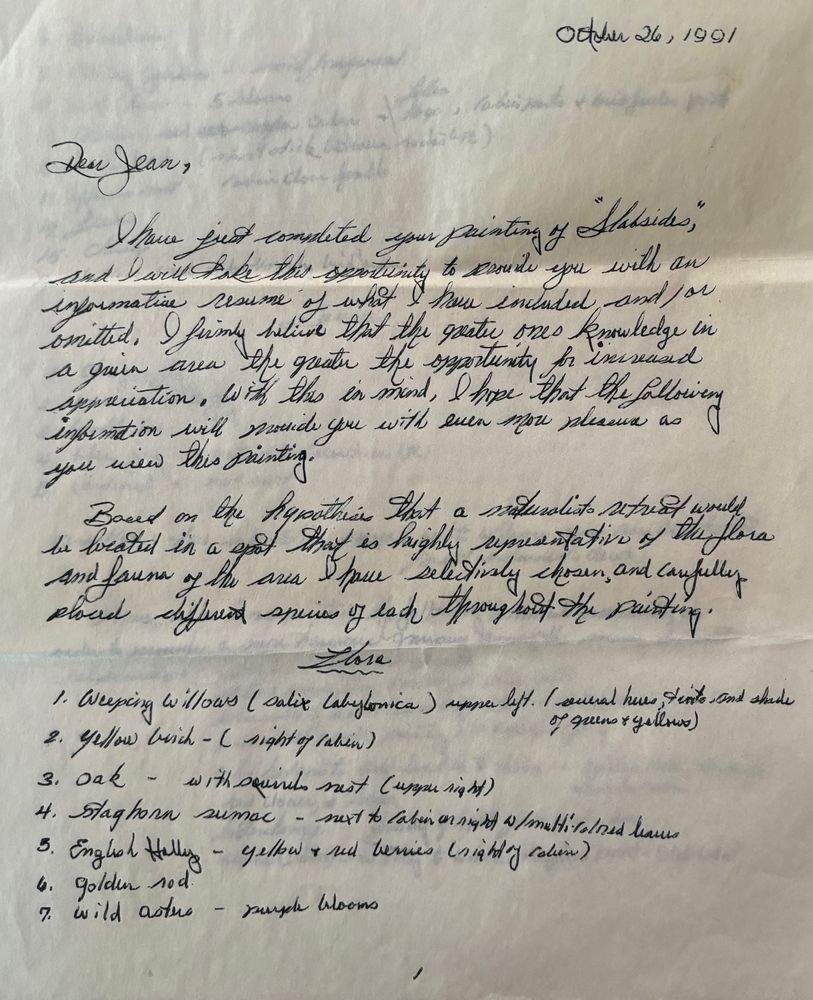 October 26, 1991
Dear Jean,
I have just completed your painting of "Slabsides,"
and I will take this opportunity to provide you with an
informative resume of what I have included and/or
omitted. I firmly believe that the greater ones knowledge in
a given area the greater the opportunity for increased
appreciation. With this in mind, I hope that the following
information will provide you with even more pleasure as
you view this painting.
Based on the hypothesis that a naturalists retreat would
be located in a spot that is highly representative of the flora
and fauna of the area I have selectively chosen, and carefully
placed different species of each throughout the painting.
Flora
1. Weeping Willows (salix babylonica) upper left. (several hues, tints, and shade
of greens + yellows)
2. Yellow birch - (right of cabin)
3. Oak - with squirrels nest (upper right)
4. Staghorn sumac - next to cabin on right w/multi-colored leaves
5. English Holly - yellow + red berries (right of cabin)
6. golden rod
7. wild asters - purple blooms
1